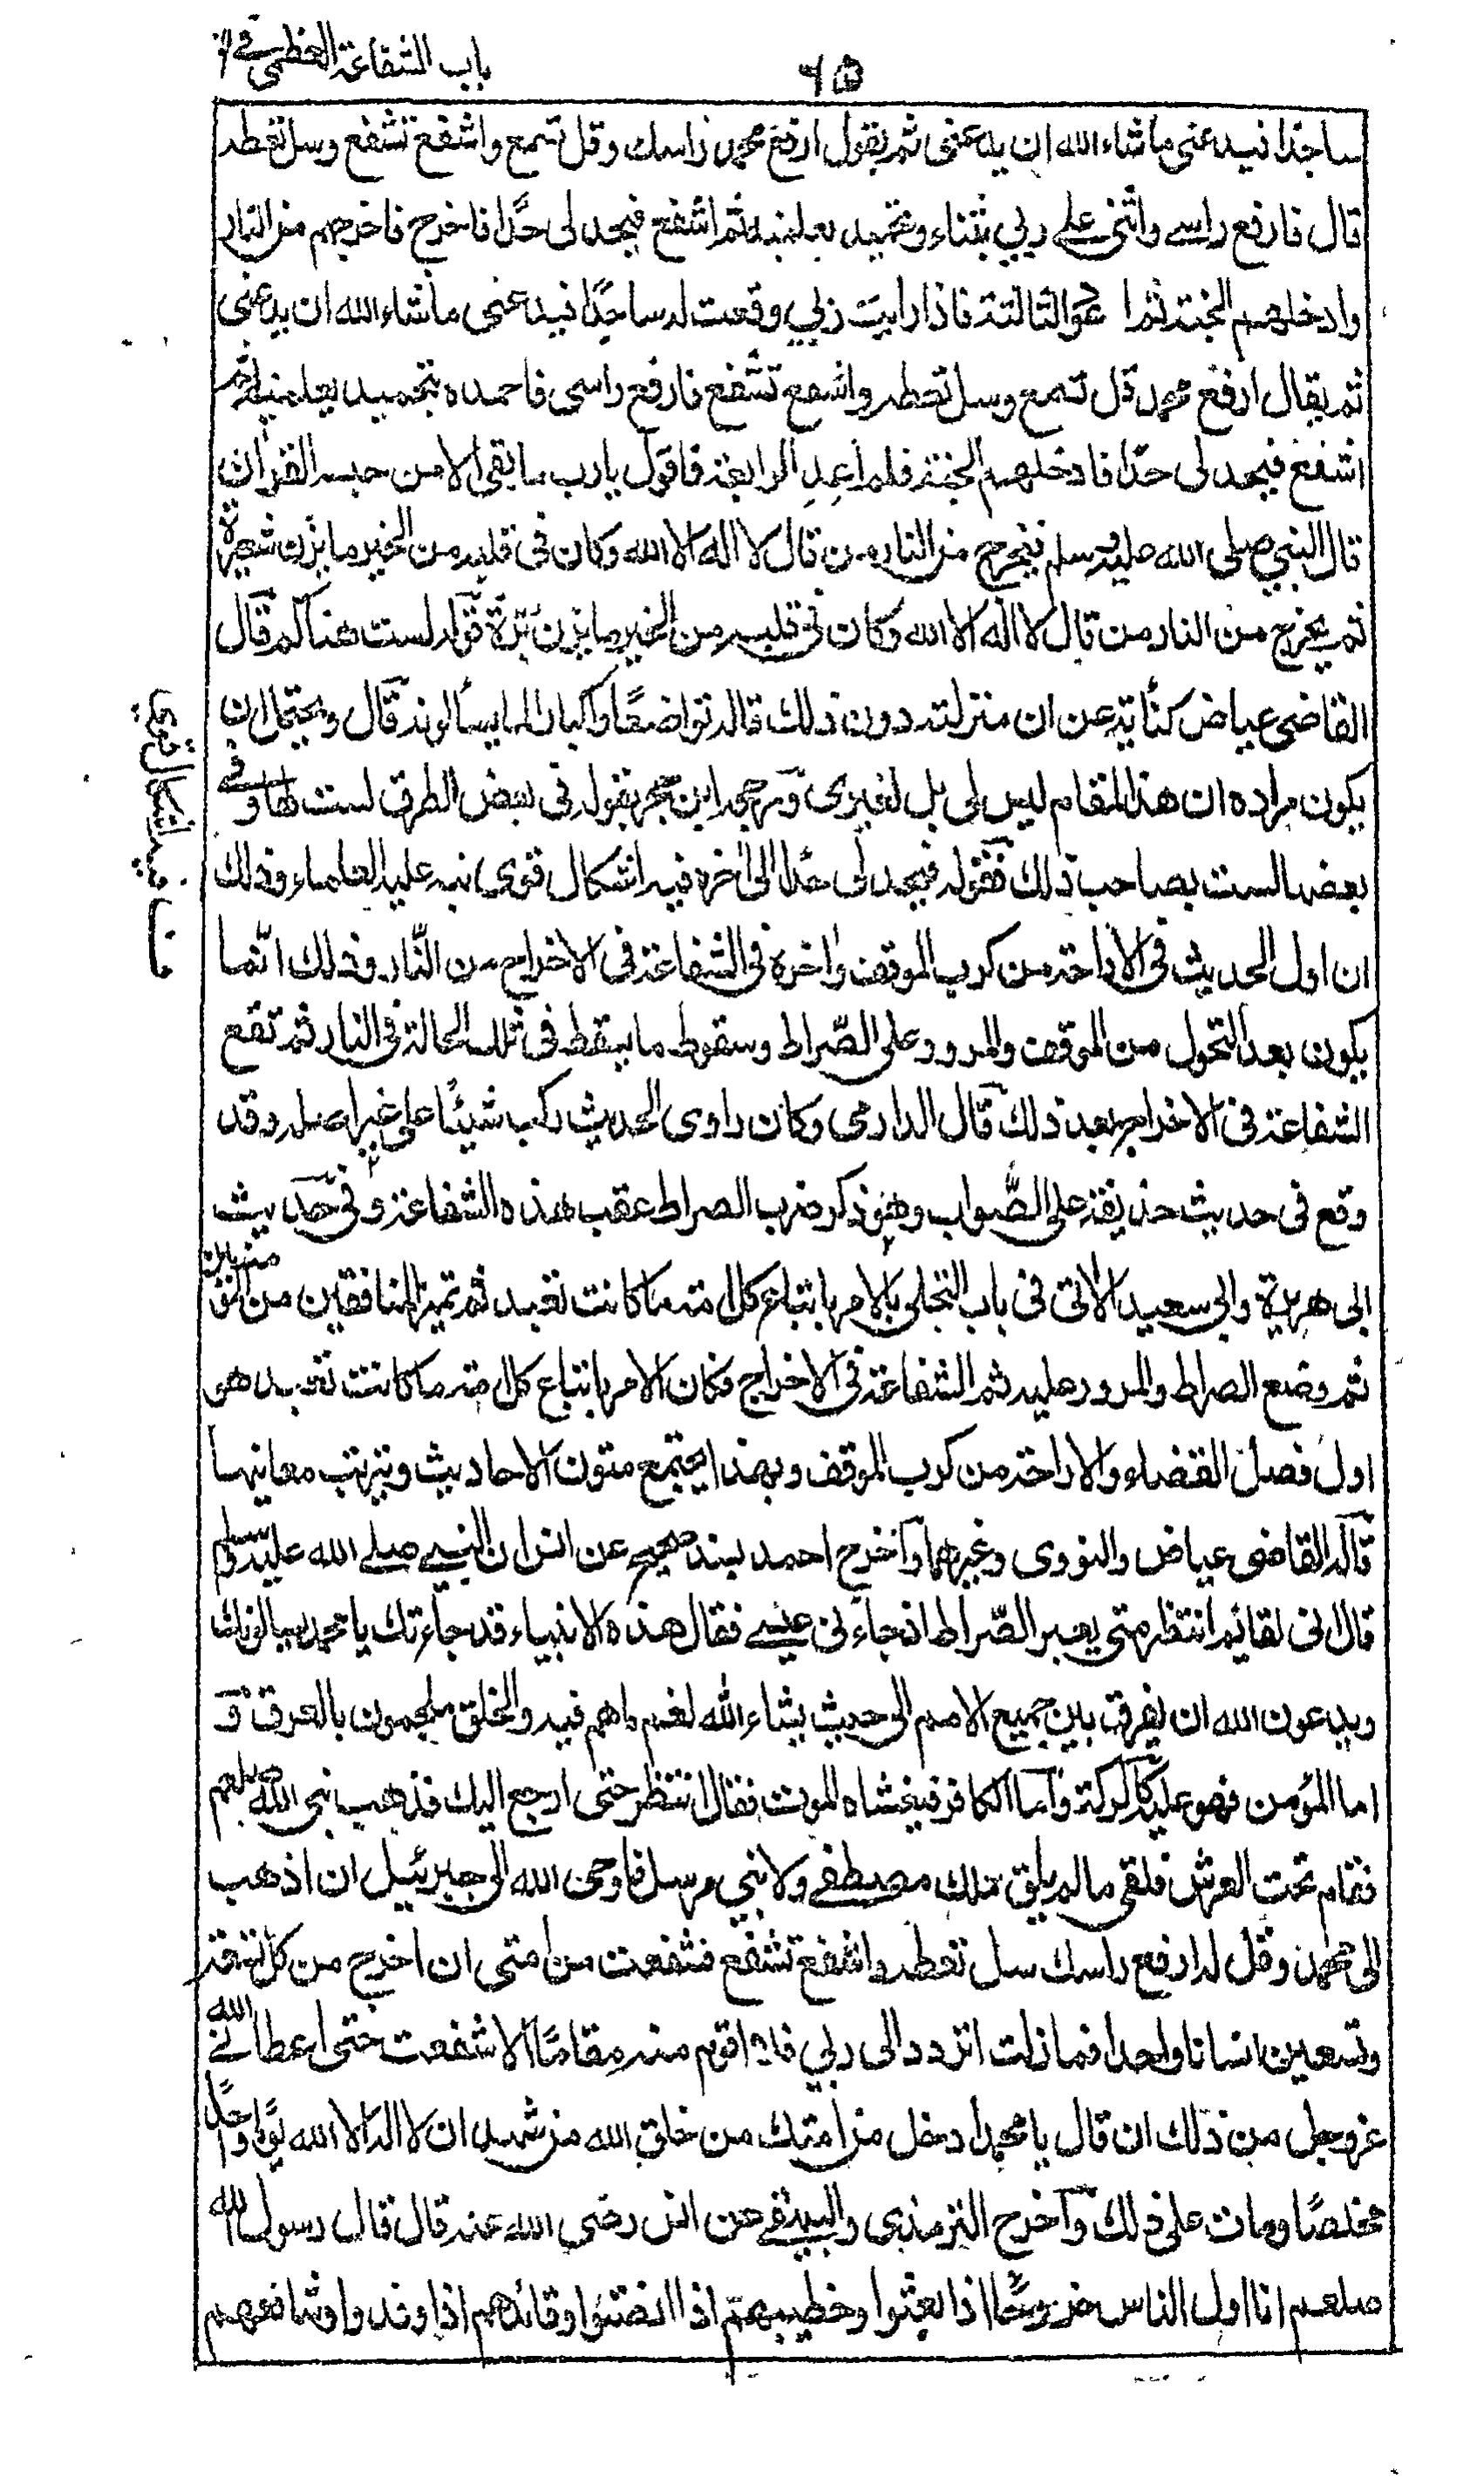 باب الشفاعة العظمى في
٦٥
ساجدا فيدعني ما شاء الله ان يدعني ثم يقول ارفع محمد راسك وقل تسمع واشفع تشفع وسل تعطه
قال فارفع راسي واثني على ربي بثناء وتحميد يعلمنيه ثم اشفع فيحد لي حدًا فاخرج فاخرجهم من النار
وادخلهم الجنة ثم اعود الثالثة فاذا رايت ربي وقعت له ساجدًا فيدعني ما شاء الله ان يدعني
ثم يقال ارفع محمد قل تسمع وسل تعطه واشفع تشفع فارفع راسي فاحمده بتحميد يعلمنيه ثم
اشفع فيحد لي حدا فادخلهم الجنة فلما اعد الرابعة فاقول يا رب ما بقي الا من حبسه القرآن
قال النبي صلى الله عليه وسلم فيخرج من النار من قال لا اله الا الله وكان في قلبه من الخير ما يزن شعيرة
ثم يخرج من النار من قال لا اله الا الله وكان في قلبه من الخير ما يزن برة قوله لست هناكم قال
القاضي عياض كنأية عن ان منزلته دون ذلك قاله تواضعًا واكبارا لما يسألونه قال ويحتمل ان
يكون مراده ان هذا المقام ليس لي بل لغيري ورجحه ابن حجر بقوله في بعض الطرق لست لها وفي
بعضها لست بصاحب ذلك فقوله فيحد لي حدا الى آخره فيه اشكال قوي نبه عليه العلماء وذلك
فا فيه اشكال قوي
ان اول الحديث في الاراحة من كرب الموقف وآخره في الشفاعة في الاخراج من النّار وذلك انّما
يكون بعد التحول من الموقف والمرور على الصّراط وسقوط ما يسقط في تلك الحالة في النار ثم تقع
الشفاعة في الاخراج بعد ذلك قال الدارمي وكان راوي الحديث ركب شيئًا على غير اصله وقد
وقع في حديث حذيفة على الصّواب وهو ذكر ضرب الصراط عقب هذه الشفاعة وفي حديث
ابي هريرة وابي سعيد الآتي في باب التجلي بالامر باتباع كل امة ما كانت تعبد ثم تميز المنافقين من المؤمنين
ثم وضع الصراط والمرور عليه ثم الشفاعة في الاخراج فكان الامر باتباع كل امة ما كانت تعبد هو
اول فصل القضاء والاراحة من كرب الموقف وبهذا يجتمع متون الاحاديث وتترتب معانيها
قاله القاضي عياض والنووي وغيرهما واخرج احمد بسند صحيح عن انس ان النبي صلى الله عليه وسلم
قال اني لقائم انتظر متى يعبر الصّراط اذ جاءني عيسى فقال هذه الانبياء قد جاءتك يا محمد يسالونك
ويدعون الله ان يفرق بين جميع الامم الى حيث يشاء الله لغم ما هم فيه والخلق ملجمون بالعرق و
اما المؤمن فهو عليه كالزكمة واما الكافر فيغشاه الموت فقال انتظر حتى ارجع اليك فذهب نبي الله صلعم
فقام تحت العرش فلقي ما لم يلق ملك مصطفى ولا نبي مرسل فاوحى الله الى جبرئيل ان اذهب
الى محمد وقل له ارفع راسك سل تعطه واشفع تشفع فشفعت من امتي ان اخرج من كل تسعة
وتسعين انسانا واحدا فما زلت اتردد الى ربي فلا اقوم منه مقامًا الا شفعت حتى اعطاني الله
عز وجل من ذلك ان قال يا محمد ادخل من امتك من خلق الله من شهد ان لا اله الا الله يومًا واحدًا
مخلصًا ومات على ذلك واخرج الترمذي والبيهقي عن انس رضي الله عنه قال قال رسول الله
صلعم انا اول الناس خروجًا اذا بعثوا وخطيبهم اذا انصتوا وقائدهم اذا وفدوا وشافعهم